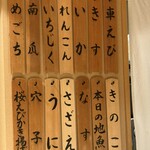 車えび
きす
いか
れんこん
いちじく
南瓜
めごち
きのこ
本日の地魚
なす
さざえ
うに
穴子
桜えびかき揚